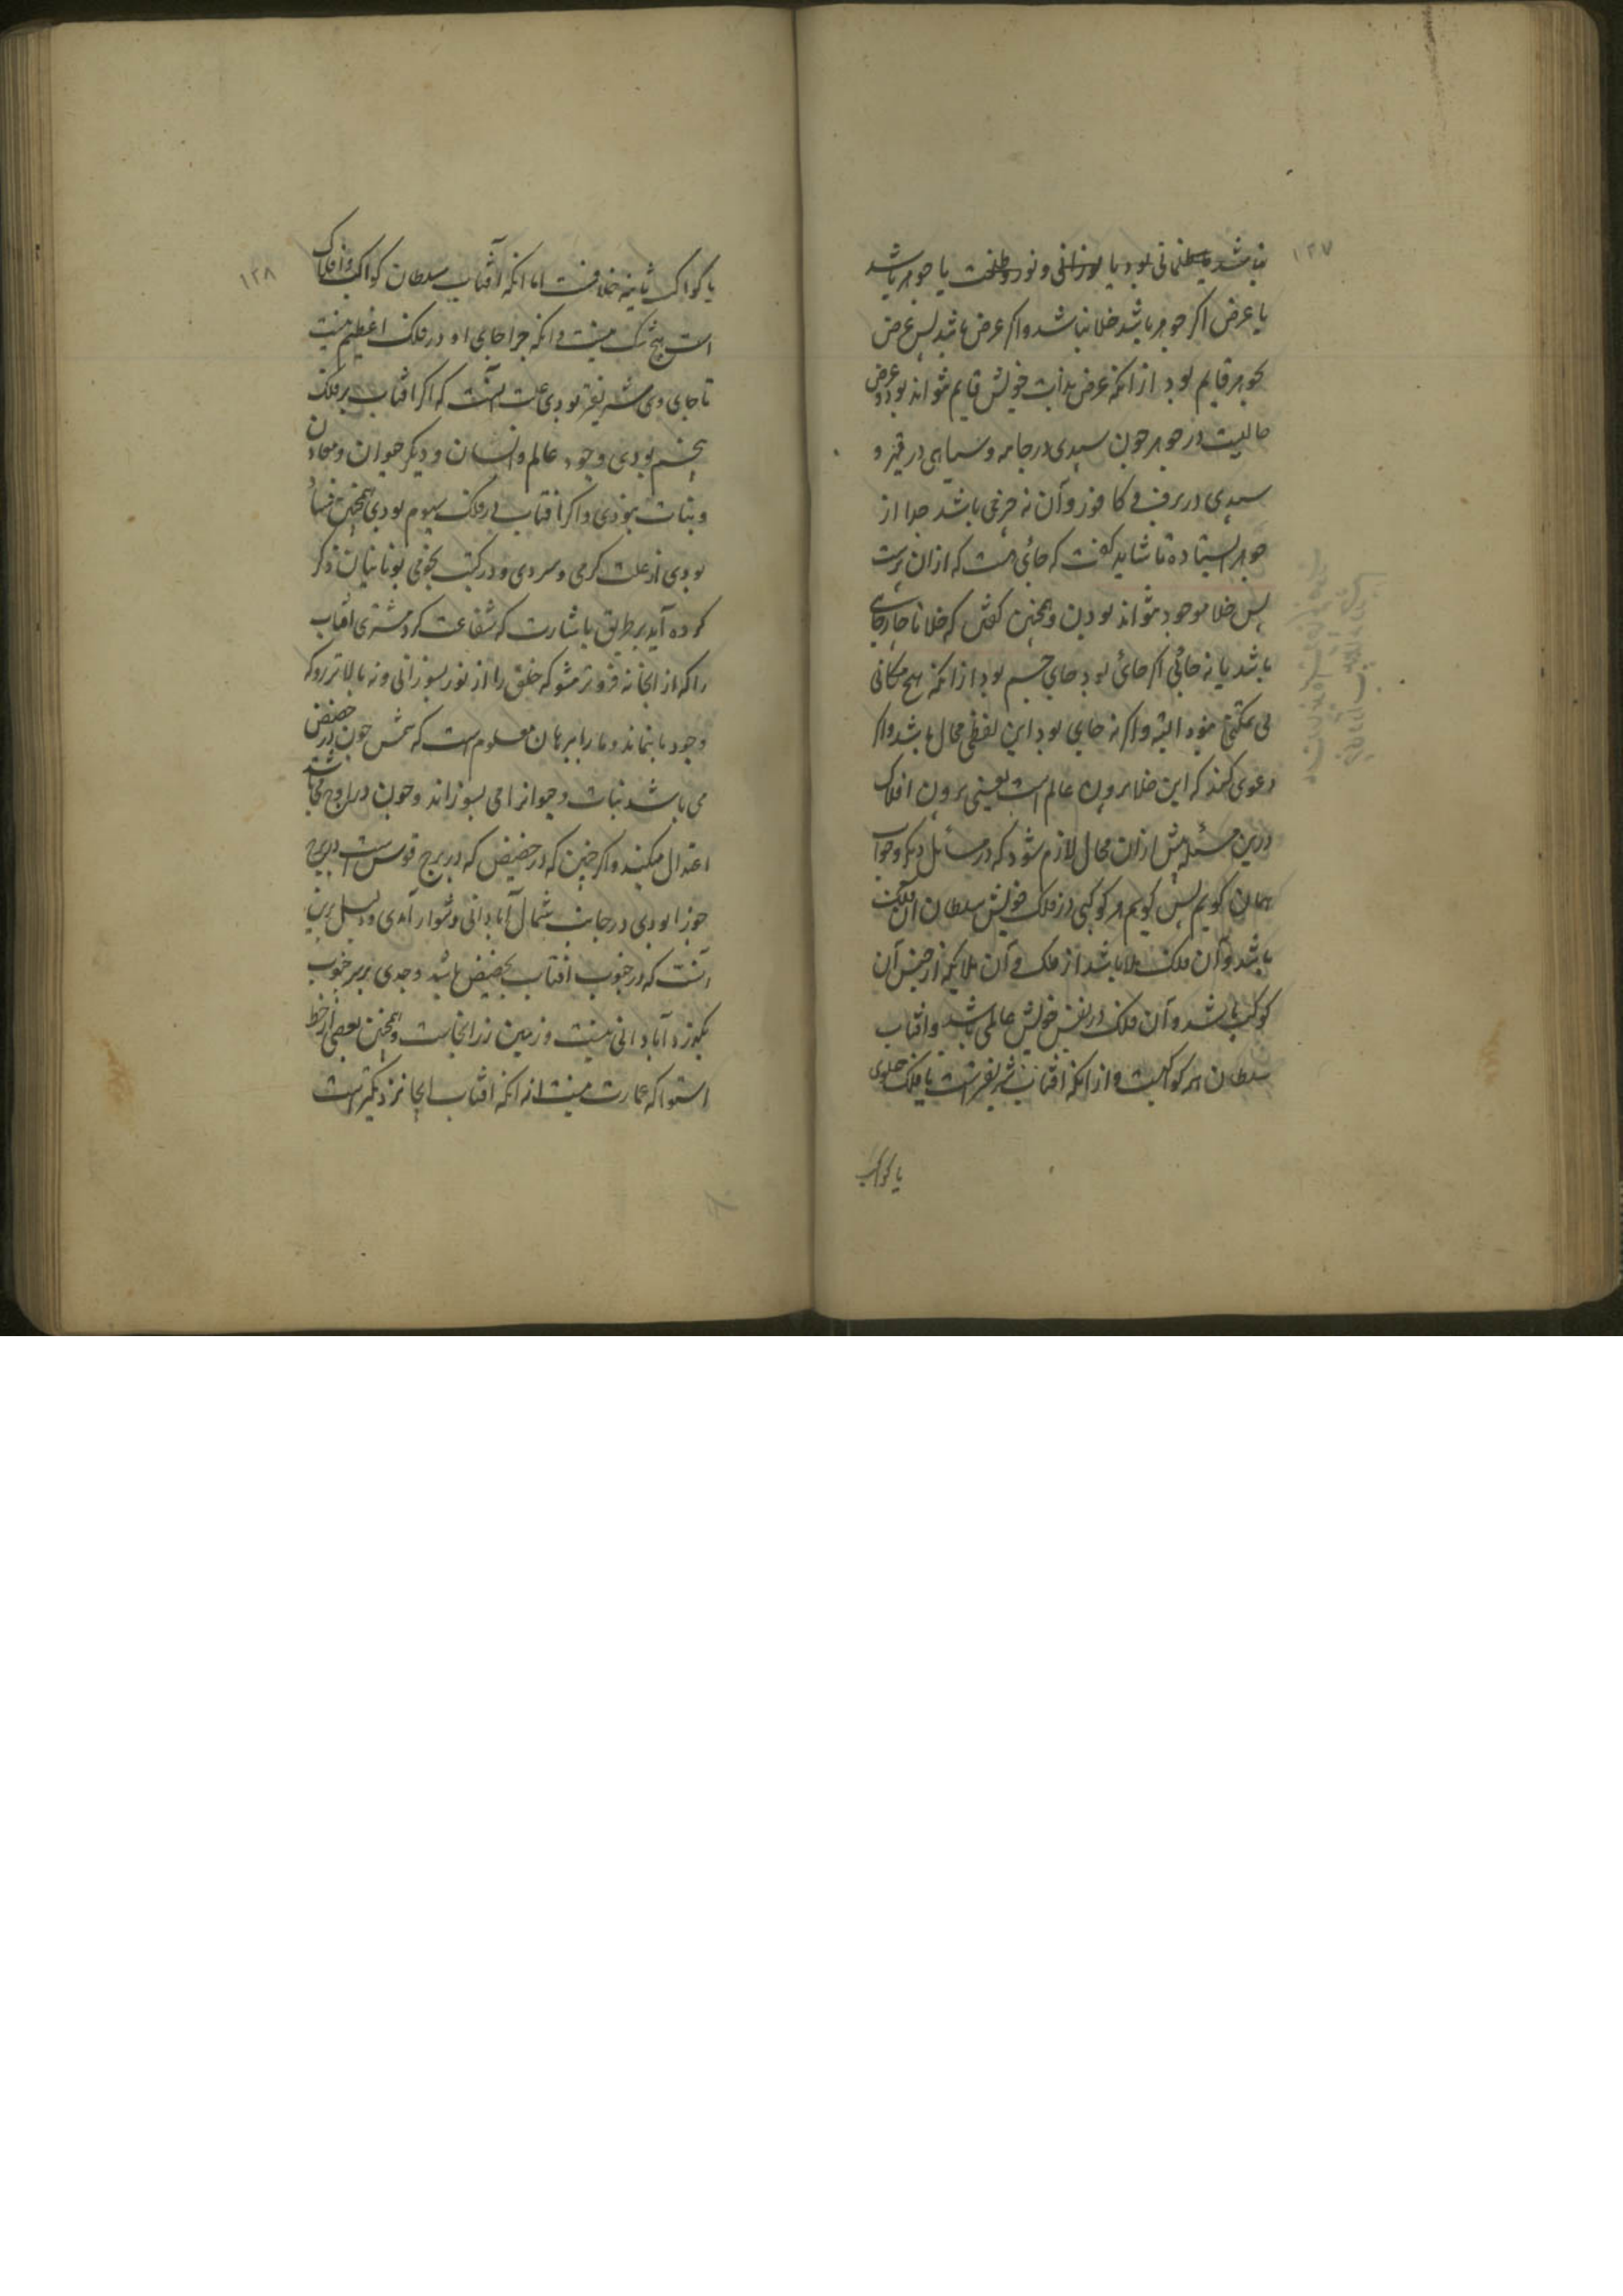 ۱۲۷
نباشد یا ظلمانی بود یا نورانی و نور و ظلمت یا جوهر باشد
یا عرض اکر جوهر باشد خلا نباشد و اکر عرض باشد پس عرض
بجوهر قایم بود از انکه عرض بذات خویش قایم نتواند بود و عرض
حالیست در جوهر چون سپیدی در جامه و سیاهی در قیر و
سپیدی در برف و کافور و آن نه چیزی باشد جدا از
جوهر ایستاده تا شاید کفت که جائی هست که ازان پرست
پس خلا موجود نتواند بودن و همچنین کفتن که خلا تا چه جای
باشد یا نه جائی اکر جائی بود جای جسم بود از انکه هیچ مکانی
بی متمکن نبود البته و اکر نه جای بود این لفظی محال باشد و اکر
دعوی کنند که این خلا برون عالم است یعنی برون افلاک
درین مسئله بیش ازان محال لازم شود که در مسائل دیکر و جواب
همان کویم پس کویم هر کوکبی در فلک خویش سلطان آن فلکست
باشد و آن فلک ملا باشد از ملک و آن ملایکه از جنس آن
کوکب باشد و آن فلک در نفس خویش عالمی باشد و افتاب
سلطان هر کواکبست و از انکه افتاب شریفترست یا فلک علوی
یا کواکب
۱۲۸
یا کواکب ثابته خلافست اما انکه آفتاب سلطان کواکب و افلاک
است هیچ شک نیست و انکه چرا جای او در فلک اعظم نیست
تا جای وی شریفتر بودی علت آنست که اکر افتاب بر فلک
پنجم بودی وجود عالم و انسان و دیکر حیوان و معادن
و نبات نبودی و اکر افتاب در فلک سیوم بودی همچنین فساد
بودی از علت کرمی و سردی و در کتب نجومی یونانیان ذکر
کرده آید بر طریق باشارت که شفاعت کرد مشتری افتاب
را که از انجا نه فروتر مشو که خلق را از نور بسوزانی و نه بالاتر رو که
وجود بانماند و ما را ببرهان معلوم است که شمس چون در حضیض
می باشد نبات و حیوان را می بسوزاند و چون در اوج می باشد
اعتدال میکند و اکر چنین که در حضیض که در برج قوس است در برج
جوزا بودی در جانب شمال آبادانی دشوار آمدی و دلیل برین
آنست که در جنوب افتاب بحضیض باشد و جدی بر بر جنوب
بکوزد آبادانی نیست و زمین زر انجاست و همچنین بعضی از خط
استوا که عمارت نیست از انکه افتاب انجا نزدیکترست